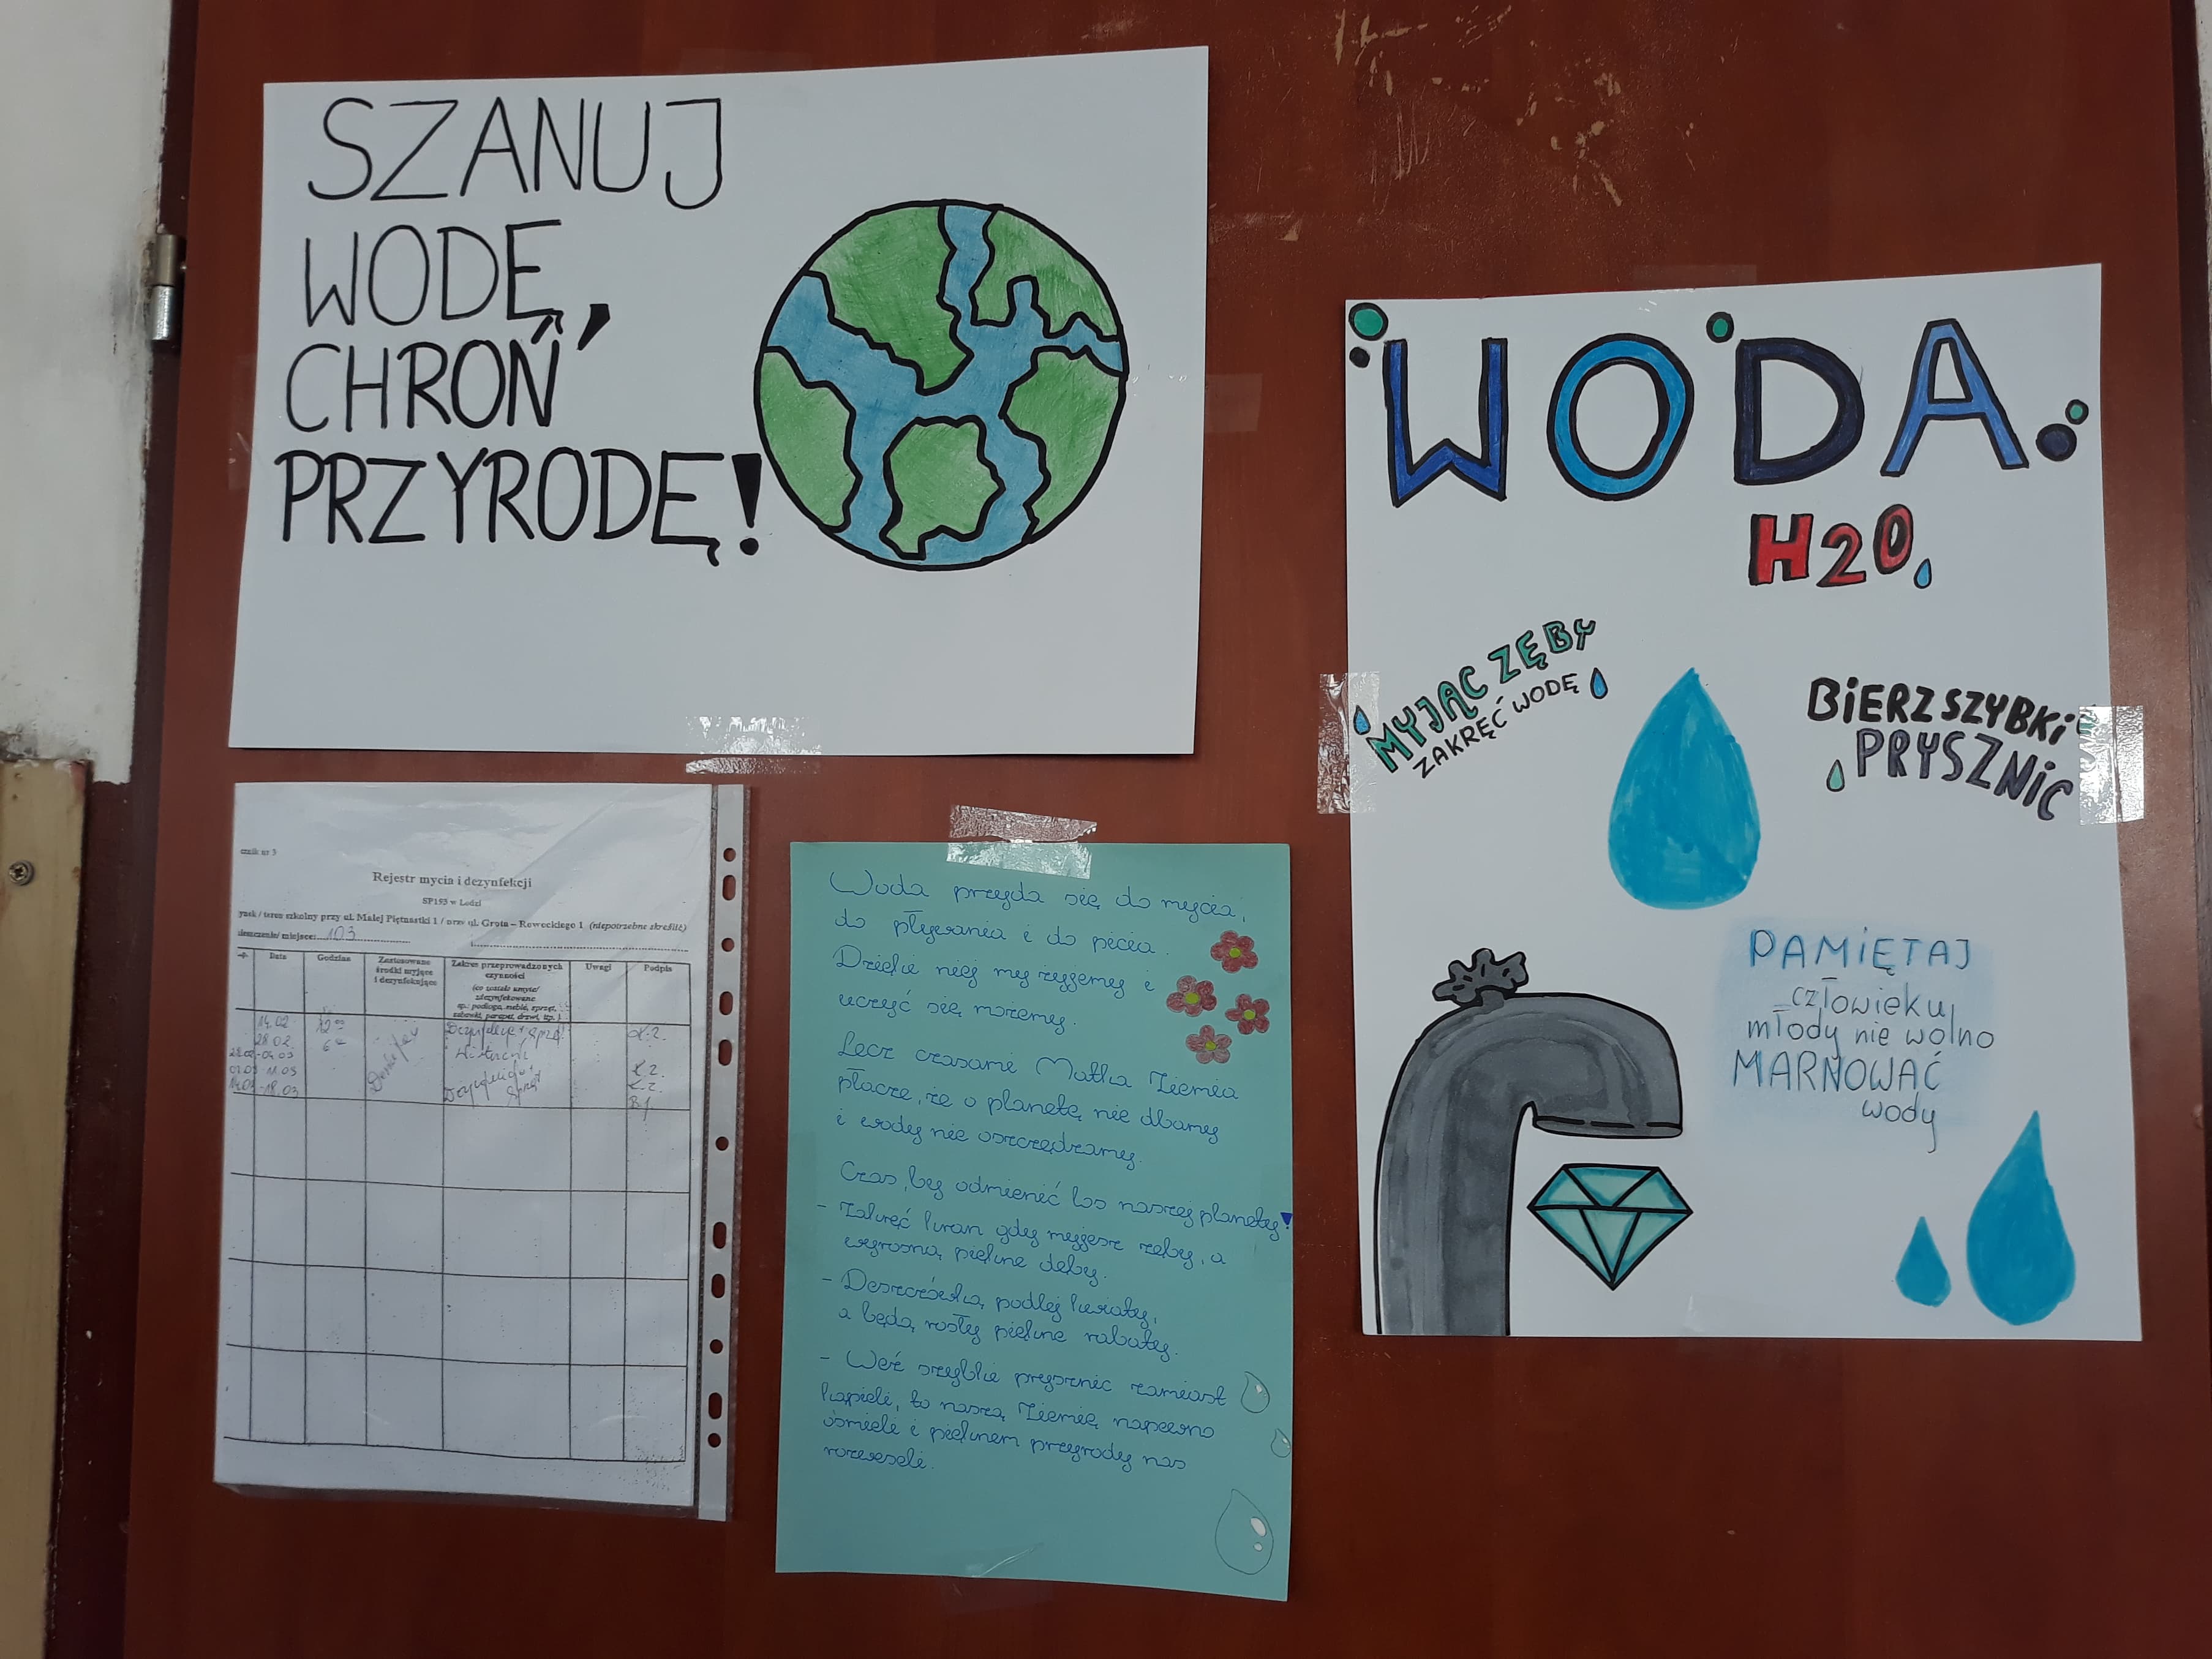 SZANUJ
WODĘ,
CHROŃ
PRZYRODĘ!
WODA
H2O
MYJĄC ZĘBY
ZAKRĘĆ WODĘ
BIERZ SZYBKI
PRYSZNIC
PAMIĘTAJ
człowieku
młody nie wolno
MARNOWAĆ
wody
cznik nr 3
Rejestr mycia i dezynfekcji
SP193 w Łodzi
ynek / teren szkolny przy ul. Małej Piętnastki 1 / przy ul. Grota – Roweckiego 1 (niepotrzebne skreślić)
ieszczenie/ miejsce: 103
Data Godzina Zastosowane środki myjące i dezynfekujące Zakres przeprowadzonych czynności (co zostało umyte/ zdezynfekowane np.: podłoga, meble, sprzęt, zabawki, parapet, drzwi, itp.) Uwagi Podpis
14.02 12 00
28.02
-04.03
-11.03
-18.03
Woda przyda się do mycia,
do pływania i do picia.
Dzięki niej my żyjemy i
uczyć się możemy.
Lecz czasami Matka Ziemia
płacze, że o planetę nie dbamy
i wody nie oszczędzamy.
Czas, by odmienić los naszej planety!
- Zakręć kran gdy myjesz zęby, a
wyrosną piękne dęby.
- Deszczówką podlej kwiaty,
a będą rosły piękne rabaty.
- Weź szybki prysznic zamiast
kąpieli, to naszą Ziemię napewno
ośmieli i pięknem przyrody nas
rozweseli.